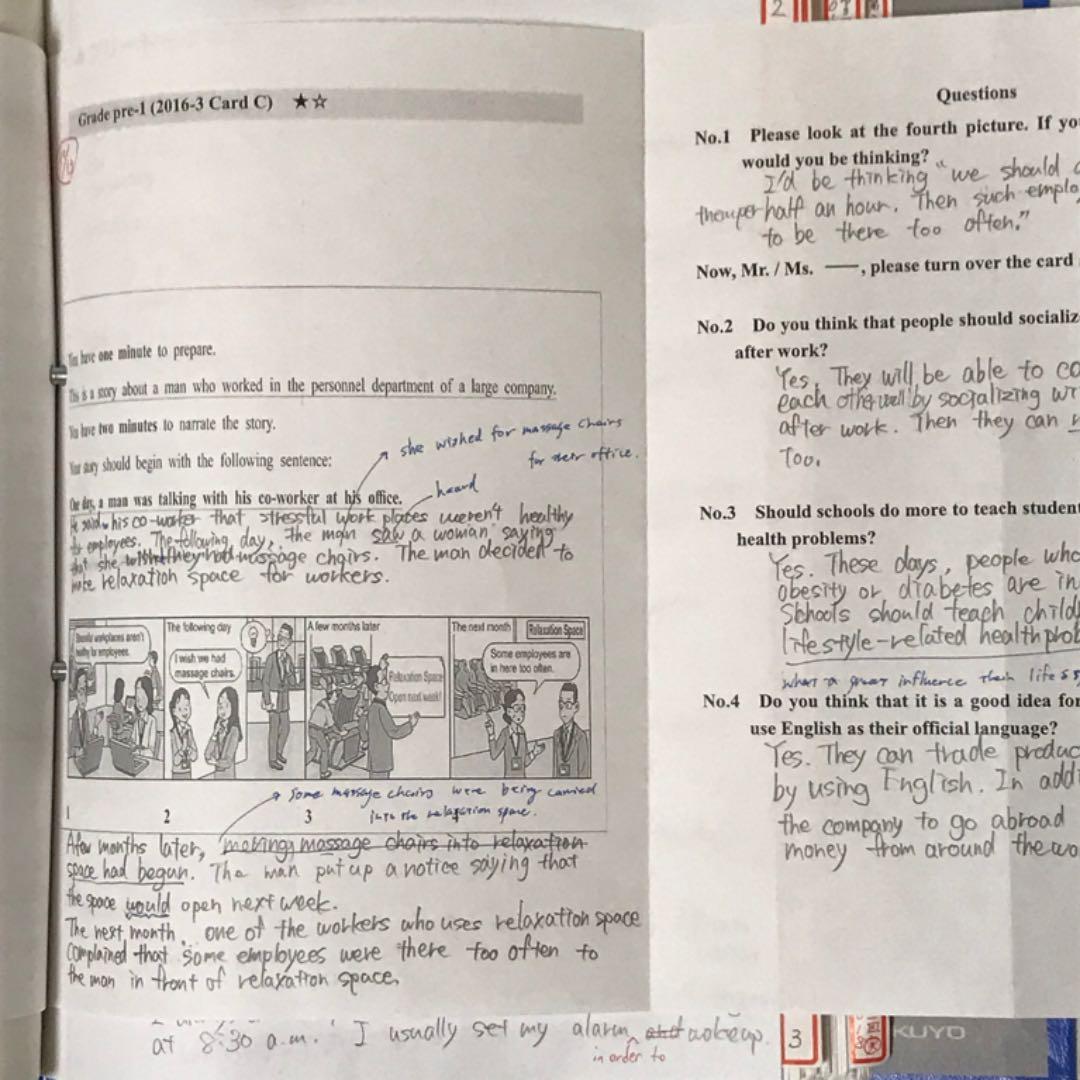 2
Grade pre-1 (2016-3 Card C) ★☆
You have one minute to prepare.
This is a story about a man who worked in the personnel department of a large company.
You have two minutes to narrate the story.
Your story should begin with the following sentence:
she wished for massage chairs
for their office.
One day, a man was talking with his co-worker at his office.
heard
He said his co-worker that stressful work places weren't healthy
for employees. The following day, the man saw a woman saying
that she wish they had massage chairs. The man decided to
make relaxation space for workers.
Stressful workplaces aren't
healthy for employees.
The following day
I wish we had
massage chairs.
A few months later
Relaxation Space
Open next week!
The next month
Relaxation Space
Some employees are
in here too often.
some massage chairs were being carried
into the relaxation space.
1 2 3
A few months later, moving massage chairs into relaxation
space had begun. The man put up a notice saying that
the space would open next week.
The next month, one of the workers who uses relaxation space
complained that some employees were there too often to
the man in front of relaxation space.
at 8:30 a.m. I usually set my alarm and wake up.
in order to
Questions
No.1 Please look at the fourth picture. If yo
would you be thinking?
I'd be thinking "we should
half an hour. Then such emplo
to be there too often."
Now, Mr. / Ms. ——, please turn over the card
No.2 Do you think that people should socializ
after work?
Yes. They will be able to co
each other well by socializing
after work. Then they can
too.
No.3 Should schools do more to teach student
health problems?
Yes. These days, people who
obesity or diabetes are in
Schools should teach child
lifestyle-related health prob
what a great influence their lifes
No.4 Do you think that it is a good idea for
use English as their official language?
Yes. They can trade produc
by using English. In addi
the company to go abroad
money from around the wo
3
KUYO